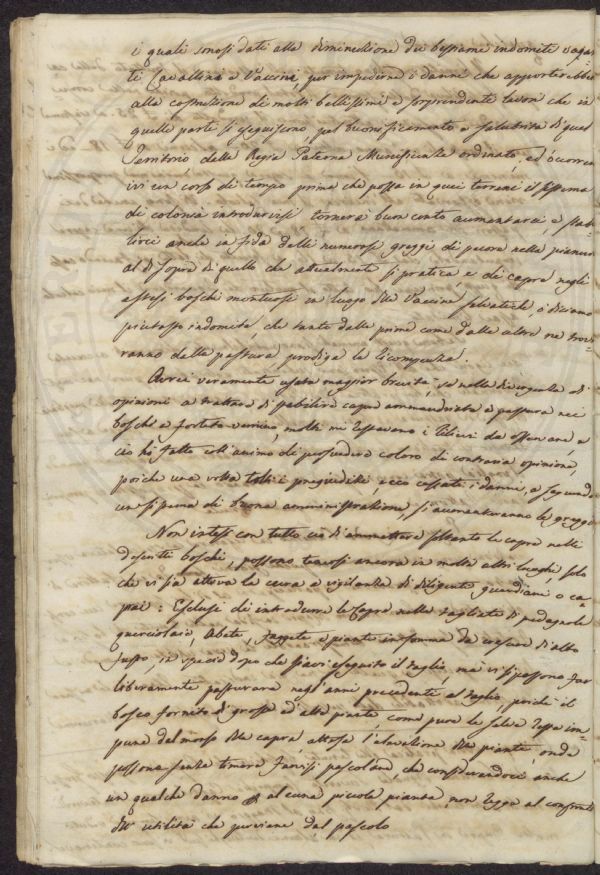 i quali sonosi dati alla diminuzione del bestiame indomito vagan=
ti Cavallini e Vaccini, per impedirne i danni che apporterebbero
alla costruzione di molti bellissimi e sorprendenti lavori che in
quelle parti si eseguiscono, pel buonificamento e salubrità di quel
Territorio dalla Regia Paterna Munificenza ordinato, ed occorren
ivi un corso di tempo prima che possa in quei terreni il sistema
di colonia introdurvisi tornerà buon conto aumentarci e stabi=
lirci anche in fida delli numerosi greggi di pecore nella pianura
al di sopra di quello che attualmente si pratica, e di capre negli
estesi boschi montuosi in luogo delle Vaccine selvatiche, o diciamo
piuttosto indomite, che tanto dalle prime come dalle altre ne trove=
ranno della pastura prodiga le ricompenza.
Avrei veramente usata maggior brevità, se nella divergenza di
opinioni a trattare di stabilire capre ammandriate a pastura nei
boschi a fortato vernino, molti mi restavano i rilievi da osservare, e
ciò hò fatto coll'animo di persuadere coloro di contraria opinione,
poichè una volta tolti i pregiudizi, ecco cessati i danni, e seguendo
un sistema di buona amministrazione, si aumenteranno le greggi
Non intesi con tutto ciò di ammettere soltanto le capre nelli
descritti boschi, possono tenersi ancora in molti altri luoghi, solo
che vi sia attiva la cura e vigilanza di diligenti guardiani o ca=
prai: Esclusi di introdurre le Capre nelle tagliate di pedagnole
querciolaie, Abete, faggete e piante in somma da crescere d'alto
fusto, in specie dopo che siavi eseguito il taglio, ma vi si possono far
liberamente pasturare negl'anni precedenti al taglio, poichè il
bosco fornito di grosse ed'alte piante, come pure le selve resta im=
pune dal morso delle capre, attesa l'elevazione delle piante, onde
possono senza timore farvisi pascolare, che considerandoci anche
un qualche danno ad alcuna piccola pianta, non regge al confronto
dell'utilità che perviene dal pascolo